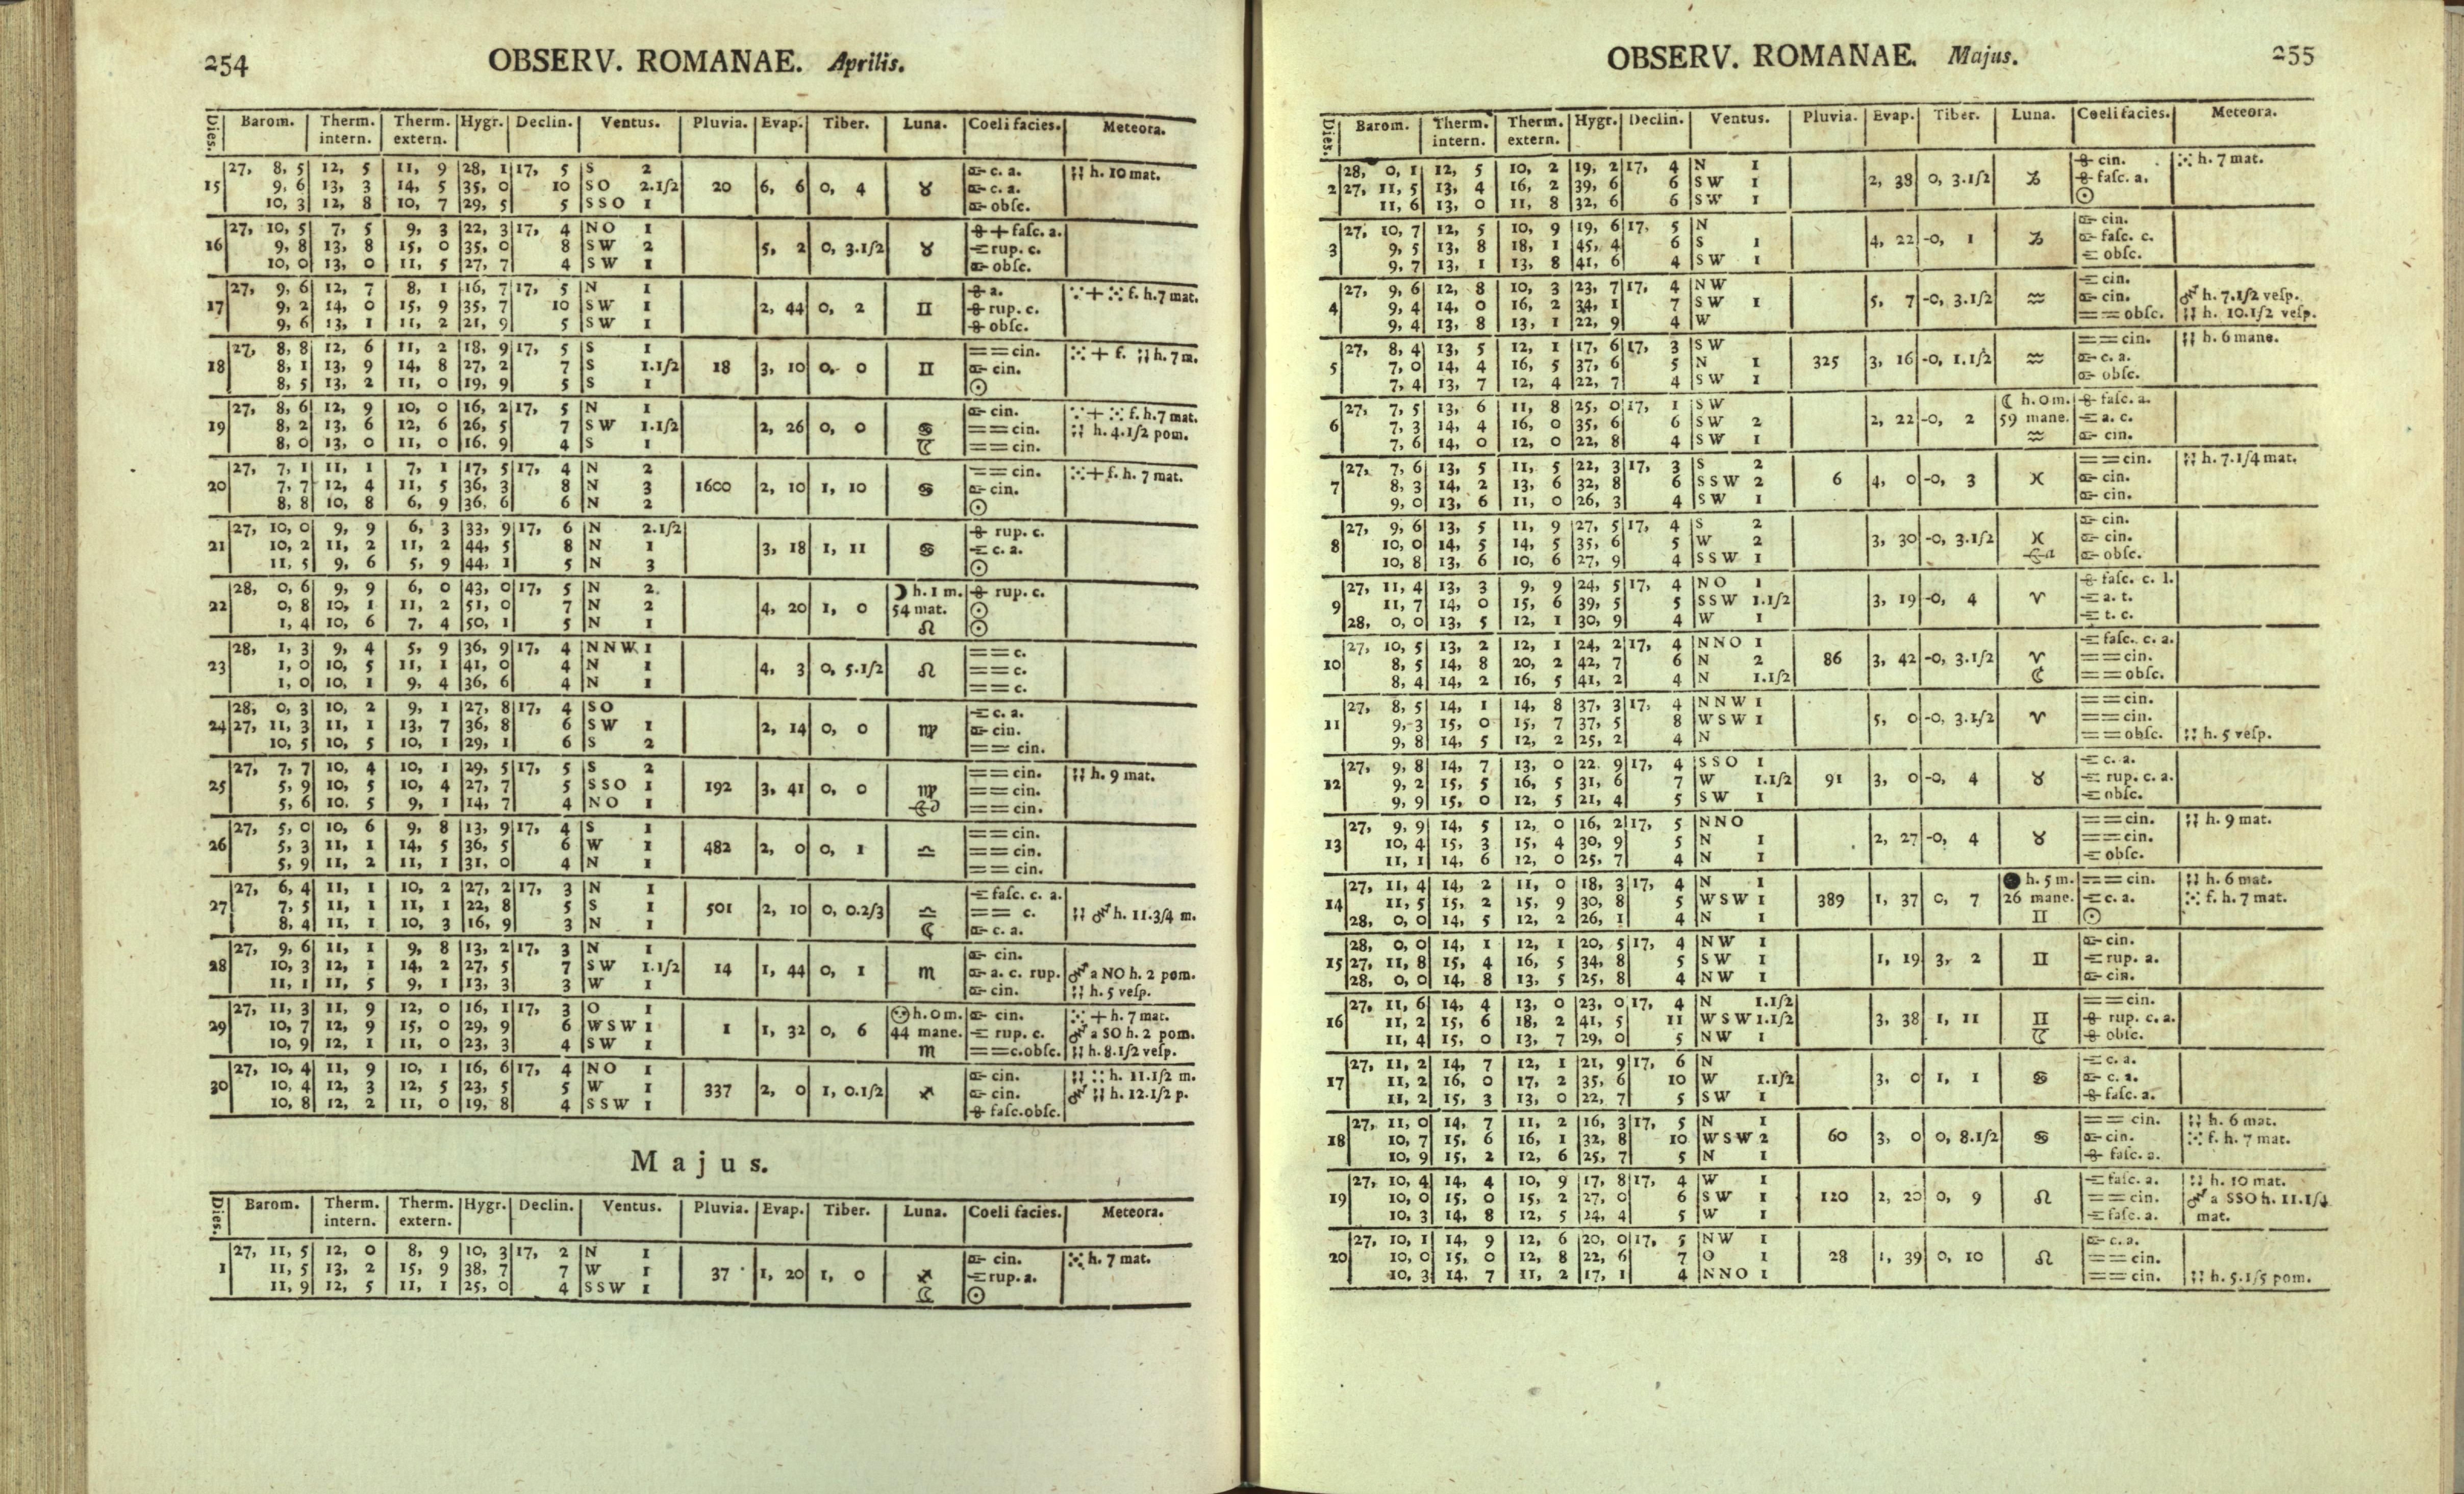 254 OBSERV. ROMANAE. Aprilis.
Dies. Barom. Therm. intern. Therm. extern. Hygr. Declin. Ventus. Pluvia. Evap. Tiber. Luna. Coeli facies. Meteora.
27, 8, 5 12, 5 11, 9 28, 1 17, 5 S 2 c. a. h. 10 mat.
15 9, 6 13, 3 14, 5 35, 0 10 SO 2.1/2 20 6, 6 0, 4 ♉ c. a.
10, 3 12, 8 10, 7 29, 5 5 SSO 1 obſc.
27, 10, 5 7, 5 9, 3 22, 3 17, 4 NO 1 + faſc. a.
16 9, 8 13, 8 15, 0 35, 0 8 SW 2 5, 2 0, 3.1/2 ♉ rup. c.
10, 0 13, 0 11, 5 27, 7 4 SW 1 obſc.
27, 9, 6 12, 7 8, 1 16, 7 17, 5 N 1 a. ∵ + ⁙ f. h. 7 mat.
17 9, 2 14, 0 15, 9 35, 7 10 SW 1 2, 44 0, 2 ♊ rup. c.
9, 6 13, 1 11, 2 21, 9 5 SW 1 obſc.
27, 8, 8 12, 6 11, 2 18, 9 17, 5 S 1 == cin. ⁙ + f. h. 7 m.
18 8, 1 13, 9 14, 8 27, 2 7 S 1.1/2 18 3, 10 0, 0 ♊ cin.
8, 5 13, 2 11, 0 19, 9 5 S 1 ☉
27, 8, 6 12, 9 10, 0 16, 2 17, 5 N 1 cin. ∵ + ⁙ f. h. 7 mat.
19 8, 2 13, 6 12, 6 26, 5 7 SW 1.1/2 2, 26 0, 0 ♋ == cin. h. 4.1/2 pom.
8, 0 13, 0 11, 0 16. 9 4 S 1 == cin.
27, 7, 1 11, 1 7, 1 17, 5 17, 4 N 2 == cin. ⁙ + f. h. 7 mat.
20 7, 7 12, 4 11, 5 36, 3 8 N 3 1600 2, 10 1, 10 ♋ cin.
8, 8 10, 8 6, 9 36, 6 6 N 2 ☉
27, 10, 0 9, 9 6, 3 33, 9 17, 6 N 2.1/2 rup. c.
21 10, 2 11, 2 11, 2 44, 5 8 N 1 3, 18 1, 11 ♋ c. a.
11, 5 9, 6 5, 9 44, 1 5 N 3 ☉
28, 0, 6 9, 9 6, 0 43, 0 17, 5 N 2. ☽ h. 1 m. rup. c.
22 0, 8 10, 1 11, 2 51, 0 7 N 2 4, 20 1, 0 54 mat. ☉
1, 4 10, 6 7, 4 50, 1 5 N 1 ♌ ☉
28, 1, 3 9, 4 5, 9 36, 9 17, 4 NNW 1 == c.
23 1, 0 10, 5 11, 1 41, 0 4 N 1 4, 3 0, 5.1/2 ♌ == c.
1, 0 10, 1 9, 4 36, 6 4 N 1 == c.
28, 0, 3 10, 2 9, 1 27, 8 17, 4 SO c. a.
24 27, 11, 3 11, 1 13, 7 36, 8 6 SW 1 2, 14 0, 0 ♍ cin.
10, 5 10, 5 10, 1 29, 1 6 S 2 == cin.
27, 7, 7 10, 4 10, 1 29, 5 17, 5 S 2 == cin. h. 9 mat.
25 5, 9 10, 5 10, 4 27, 7 5 SSO 1 192 3, 41 0, 0 ♍ == cin.
5, 6 10. 5 9, 1 14, 7 4 NO 1 == cin.
27, 5, 0 10, 6 9, 8 13, 9 17, 4 S 1 == cin.
26 5, 3 11, 1 14, 5 36, 5 6 W 1 482 2, 0 0, 1 ♎ == cin.
5, 9 11, 2 11, 1 31, 0 4 N 1 == cin.
27, 6, 4 11, 1 10, 2 27, 2 17, 3 N 1 faſc. c. a.
27 7, 5 11, 1 11, 1 22, 8 5 S 1 501 2, 10 0, 0.2/3 ♎ == c. h. 11.3/4 m.
8, 4 11, 1 10, 3 16, 9 3 N 1 ☾ c. a.
27, 9, 6 11, 1 9, 8 13, 2 17, 3 N 1 cin.
28 10, 3 12, 1 14, 2 27, 5 7 SW 1.1/2 14 1, 44 0, 1 ♏ a. c. rup. a NO h. 2 pom.
11, 1 11, 5 9, 1 13, 3 3 W 1 cin. h. 5 veſp.
27, 11, 3 11, 9 12, 0 16, 1 17, 3 O 1 h. 0 m. cin. ⁙ + h. 7 mat.
29 10, 7 12, 9 15, 0 29, 9 6 WSW 1 1 1, 32 0, 6 44 mane. rup. c. a SO h. 2 pom.
10, 9 12, 1 11, 0 23, 3 4 SW 1 ♏ == c. obſc. h. 8.1/2 veſp.
27, 10, 4 11, 9 10, 1 16, 6 17, 4 NO 1 cin. h. 11.1/2 m.
30 10, 4 12, 3 12, 5 23, 5 5 W 1 337 2, 0 1, 0.1/2 ♐ cin. h. 12.1/2 p.
10, 8 12, 2 11, 0 19, 8 4 SSW 1 faſc. obſc.
Majus.
Dies. Barom. Therm. intern. Therm. extern. Hygr. Declin. Ventus. Pluvia. Evap. Tiber. Luna. Coeli facies. Meteora.
27, 11, 5 12, 0 8, 9 10, 3 17, 2 N 1 cin. ⁙ h. 7 mat.
1 11, 5 13, 2 15, 9 38, 7 7 W 1 37 1, 20 1, 0 ♐ rup. a.
11, 9 12, 5 11, 1 25, 0 4 SSW 1 ☉
OBSERV. ROMANAE. Majus. 255
Dies. Barom. Therm. intern. Therm. extern. Hygr. Declin. Ventus. Pluvia. Evap. Tiber. Luna. Coeli facies. Meteora.
28, 0, 1 12, 5 10, 2 19, 2 17, 4 N 1 cin. ⁙ h. 7 mat.
2 27, 11, 5 13, 4 16, 2 39, 6 6 SW 1 2, 38 0, 3.1/2 ♑ faſc. a.
11, 6 13, 0 11, 8 32, 6 6 SW 1 ☉
27, 10, 7 12, 5 10, 9 19, 6 17, 5 N cin.
3 9, 5 13, 8 18, 1 45, 4 6 S 1 4, 22 -0, 1 ♑ faſc. c.
9, 7 13, 1 13, 8 41, 6 4 SW 1 obſc.
27, 9, 6 12, 8 10, 3 23, 7 17, 4 NW cin.
4 9, 4 14, 0 16, 2 34, 1 7 SW 1 5, 7 -0, 3.1/2 ♒ cin. h. 7.1/2 veſp.
9, 4 13, 8 13, 1 22, 9 4 W == obſc. h. 10.1/2 veſp.
27, 8, 4 13, 5 12, 1 17, 6 17, 3 SW == cin. h. 6 mane.
5 7, 0 14, 4 16, 5 37, 6 5 N 1 325 3, 16 -0, 1.1/2 ♒ c. a.
7, 4 13, 7 12, 4 22, 7 4 SW 1 obſc.
27, 7, 5 13, 6 11, 8 25, 0 17, 1 SW ☾ h. 0 m. faſc. a.
6 7, 3 14, 4 16, 0 35, 6 6 SW 2 2, 22 -0, 2 59 mane. a. c.
7, 6 14, 0 12, 0 22, 8 4 SW 1 ♒ cin.
27, 7, 6 13, 5 11, 5 22, 3 17, 3 S 2 == cin. h. 7.1/4 mat.
7 8, 3 14, 2 13, 6 32, 8 6 SSW 2 6 4, 0 -0, 3 ♓ cin.
9, 0 13, 6 11, 0 26, 3 4 SW 1 cin.
27, 9, 6 13, 5 11, 9 27, 5 17, 4 S 2 cin.
8 10, 0 14, 5 14, 5 35, 6 5 W 2 3, 30 -0, 3.1/2 ♓ cin.
10, 8 13, 6 10, 6 27, 9 4 SSW 1 obſc.
27, 11, 4 13, 3 9, 9 24, 5 17, 4 NO 1 faſc. c. l.
9 11, 7 14, 0 15, 6 39, 5 5 SSW 1.1/2 3, 19 -0, 4 ♈ a. t.
28, 0, 0 13, 5 12, 1 30, 9 4 W 1 t. c.
27, 10, 5 13, 2 12, 1 24, 2 17, 4 NNO 1 faſc. c. a.
10 8, 5 14, 8 20, 2 42, 7 6 N 2 86 3, 42 -0, 3.1/2 ♈ == cin.
8, 4 14, 2 16, 5 41, 2 4 N 1.1/2 ☾ == obſc.
27, 8, 5 14, 1 14, 8 37, 3 17, 4 NNW 1 == cin.
11 9, 3 15, 0 15, 7 37, 5 8 WSW 1 5, 0 -0, 3.1/2 ♈ == cin.
9, 8 14, 5 12, 2 25, 2 4 N == obſc. h. 5 veſp.
27, 9, 8 14, 7 13, 0 22. 9 17, 4 SSO 1 c. a.
12 9, 2 15, 5 16, 5 31, 6 7 W 1.1/2 91 3, 0 -0, 4 ♉ rup. c. a.
9, 9 15, 0 12, 5 21, 4 5 SW 1 obſc.
27, 9, 9 14, 5 12, 0 16, 2 17, 5 NNO == cin. h. 9 mat.
13 10, 4 15, 3 15, 4 30, 9 5 N 1 2, 27 -0, 4 ♉ == cin.
11, 1 14, 6 12, 0 25, 7 4 N 1 obſc.
27, 11, 4 14, 2 11, 0 18, 3 17, 4 N 1 ● h. 5 m. == cin. h. 6 mat.
14 11, 5 15, 2 15, 9 30, 8 5 WSW 1 389 1, 37 0, 7 26 mane. c. a. ⁙ f. h. 7 mat.
28, 0, 0 14, 5 12, 2 26, 1 4 N 1 ♊ ☉
28, 0, 0 14, 1 12, 1 20, 5 17, 4 NW 1 cin.
15 27, 11, 8 15, 4 16, 5 34, 8 5 SW 1 1, 19 3, 2 ♊ rup. a.
28, 0, 0 14, 8 13, 5 25, 8 4 NW 1 cin.
27, 11, 6 14, 4 13, 0 23, 0 17, 4 N 1.1/2 == cin.
16 11, 2 15, 6 18, 2 41, 5 11 WSW 1.1/2 3, 38 1, 11 ♊ rup. c. a.
11, 4 15, 0 13, 7 29, 0 5 NW 1 obſc.
27, 11, 2 14, 7 12, 1 21, 9 17, 6 N c. a.
17 11, 2 16, 0 17, 2 35, 6 10 W 1.1/2 3, 0 1, 1 ♋ c. a.
11, 2 15, 3 13, 0 22, 7 5 SW 1 faſc. a.
27, 11, 0 14, 7 11, 2 16, 3 17, 5 N 1 == cin. h. 6 mat.
18 10, 7 15, 6 16, 1 32, 8 10 WSW 2 60 3, 0 0, 8.1/2 ♋ cin. ⁙ f. h. 7 mat.
10, 9 15, 2 12, 6 25, 7 5 N 1 faſc. a.
27, 10, 4 14, 4 10, 9 17, 8 17, 4 W 1 faſc. a. h. 10 mat.
19 10, 0 15, 0 15, 2 27, 0 6 SW 1 120 2, 20 0, 9 ♌ == cin. a SSO h. 11.1/4
10, 3 14, 8 12, 5 24, 4 5 W 1 faſc. a. mat.
27, 10, 1 14, 9 12, 6 20, 0 17, 5 NW 1 c. a.
20 10, 0 15, 0 12, 8 22, 6 7 O 1 28 1, 39 0, 10 ♌ == cin.
10, 3 14, 7 11, 2 17, 1 4 NNO 1 == cin. h. 5.1/5 pom.